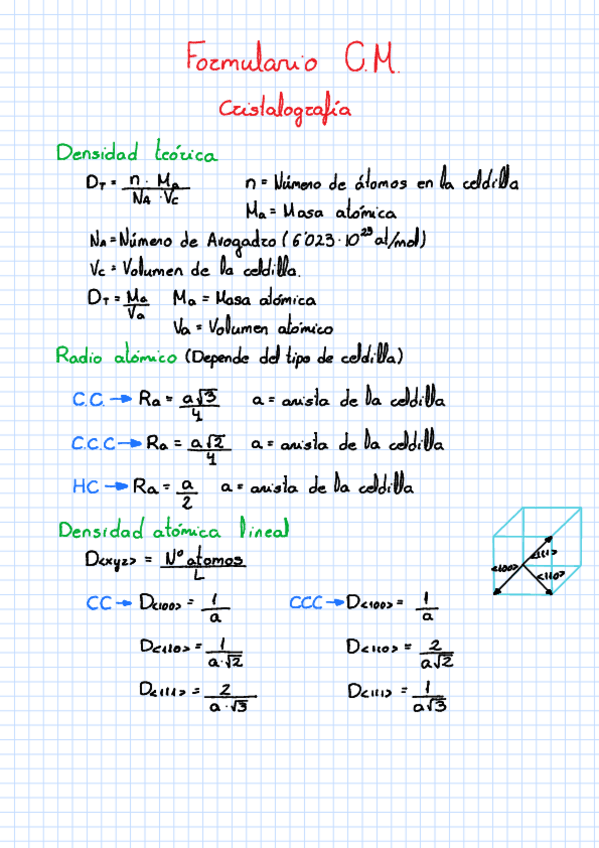 Formulario C.M.
Cristalografía
Densidad teórica
D_T = n · Ma / N_A · Vc    n = Número de átomos en la celdilla
Ma = Masa atómica
N_A = Número de Avogadro (6'023 · 10^23 at/mol)
Vc = Volumen de la celdilla.
D_T = Ma / Va    Ma = Masa atómica
Va = Volumen atómico
Radio atómico (Depende del tipo de celdilla)
C.C. → Ra = a√3 / 4    a = arista de la celdilla
C.C.C → Ra = a√2 / 4    a = arista de la celdilla
HC → Ra = a / 2    a = arista de la celdilla
Densidad atómica lineal
D<xyz> = Nº atomos / L
<111>
<100>
<110>
CC → D<100> = 1 / a    CCC → D<100> = 1 / a
D<110> = 1 / a·√2    D<110> = 2 / a√2
D<111> = 2 / a·√3    D<111> = 1 / a√3